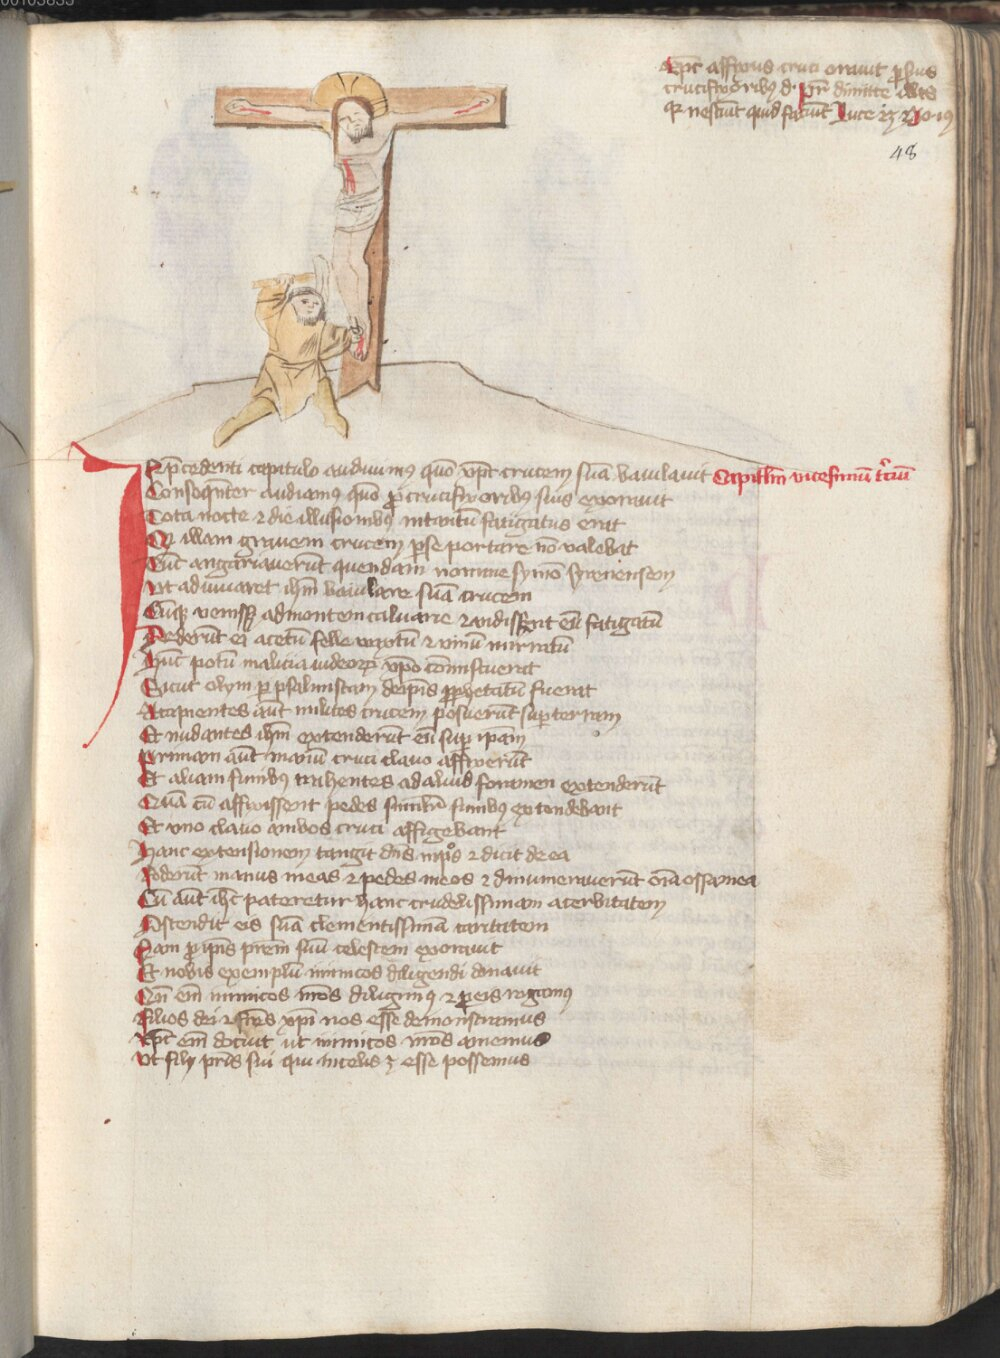 00103855
Xpc affixus cruci orauit p suis
crucifixoribȝ d. Pr̄ dimitte illis
qr nesciūt quid faciūt Luce 23 2 Jo 19
48
In p̄cedenti capitulo audiuimꝰ quō xpc crucem suā baiulauit Capitlm vicesimū t'ciū
Conseqn̄ter audiamꝰ quō p̱ crucifixoribȝ suis exorauit
Tota nocte ⁊ die illusionibȝ intantū fatigatus erat
Qꝫ illam grauem crucem p se portare nō valebat
Tūc angariauerūt quendam nomine symō Syrenensem
Ut adiuuaret ihm̄ baiulare suā crucem
Cūqꝫ venissꝫ ad montem caluarie ⁊ vidissēt eū fatigatū
Dederūt ei acetū felle mixtū ⁊ vinū mirratū
Hūc potū malicia iudeoꝝ xpo cōmiscuerat
Sicut olym per psalmistam de ipīs ꝓphetatū fuerat
Accipientes aūt milites crucem posuerūt sup terram
Et nudantes ihm̄ extenderūt eū sup ip̄am
Primam aūt manū cruci clauo affixerūt
Et aliam funibȝ trahentes ad aliud foramen extenderūt
Quā cū affixissent pedes similr̄ funibȝ extendebant
Et vno clauo ambos cruci affigebant
Hanc extensionem tangit dn̄s in ps̄ ⁊ dicit de ea
Foderūt manus meas ⁊ pedes meos ⁊ dinumerauerūt oīa ossa mea
Cū aūt ihc̄ pateretur hanc crudelissimam acerbitatem
Ostendit eis suā clementissimā caritatem
Nam p̱ ip̄is prem̄ suū celestem exorauit
Et nobis exemplū inimicos diligendi donauit
Qn̄ em̄ inimicos nr̄os diligimꝰ ⁊ p̱ eis rogamꝰ
Filios dei ⁊ fr̄es xpi nos esse demonstramus
Xpc em̄ docuit ut inimicos nr̄os amemus
Ut filij pr̄is sui qui in celis ꝫ esse possemus